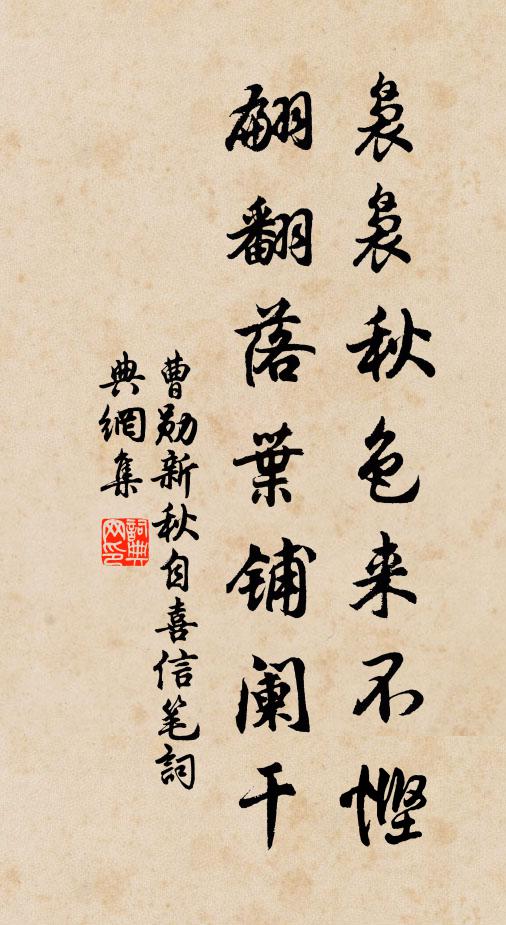 袅袅秋色来不悭
翩翻落葉铺阑干
曹勋新秋自喜信笔詞
典網集
詞典網印